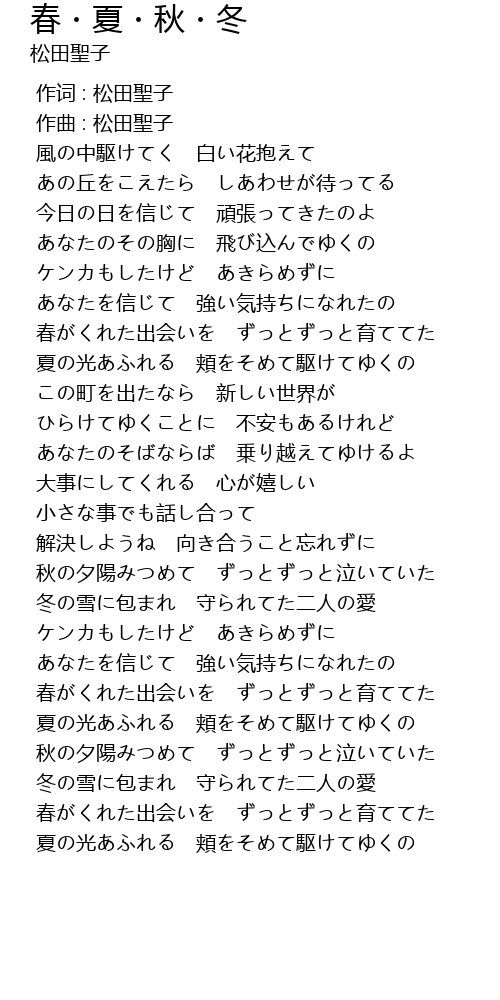 春・夏・秋・冬
松田聖子
作词 : 松田聖子
作曲 : 松田聖子
風の中駆けてく　白い花抱えて
あの丘をこえたら　しあわせが待ってる
今日の日を信じて　頑張ってきたのよ
あなたのその胸に　飛び込んでゆくの
ケンカもしたけど　あきらめずに
あなたを信じて　強い気持ちになれたの
春がくれた出会いを　ずっとずっと育ててた
夏の光あふれる　頬をそめて駆けてゆくの
この町を出たなら　新しい世界が
ひらけてゆくことに　不安もあるけれど
あなたのそばならば　乗り越えてゆけるよ
大事にしてくれる　心が嬉しい
小さな事でも話し合って
解決しようね　向き合うこと忘れずに
秋の夕陽みつめて　ずっとずっと泣いていた
冬の雪に包まれ　守られてた二人の愛
ケンカもしたけど　あきらめずに
あなたを信じて　強い気持ちになれたの
春がくれた出会いを　ずっとずっと育ててた
夏の光あふれる　頬をそめて駆けてゆくの
秋の夕陽みつめて　ずっとずっと泣いていた
冬の雪に包まれ　守られてた二人の愛
春がくれた出会いを　ずっとずっと育ててた
夏の光あふれる　頬をそめて駆けてゆくの